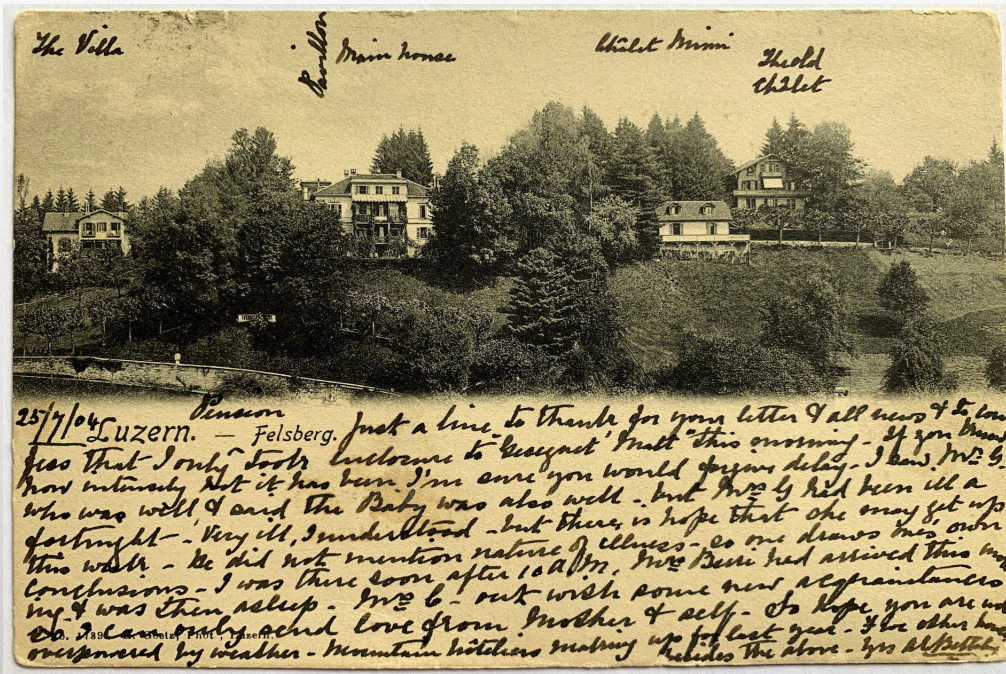 The Villa
Pavillon
Main house
Châlet Mimi
The old
Châlet
25/7/04 Luzern. — Pension Felsberg. Just a line to thank for your letter & all news & to con
fess that I only took enclosure to "Gesegnet Matt" this morning - If you knew
how intensely hot it has been I'm sure you would forgive delay - I saw Mr G
who was well & said the Baby was also well - but Mrs G had been ill a
fortnight - Very ill, I understood - but there is hope that she may get up
this week - He did not mention nature of illness - so one draws one's own
conclusions - I was there soon after 10 A.M. Mrs had arrived this
& was then asleep. Mrs C - out with some new acquaintances
so I can only send love from Mother & self - So hope you are
overpowered by weather - Mountain hôteliers making up for last year - Five other
besides the above - Yrs
Goetz, Phot., Luzern.